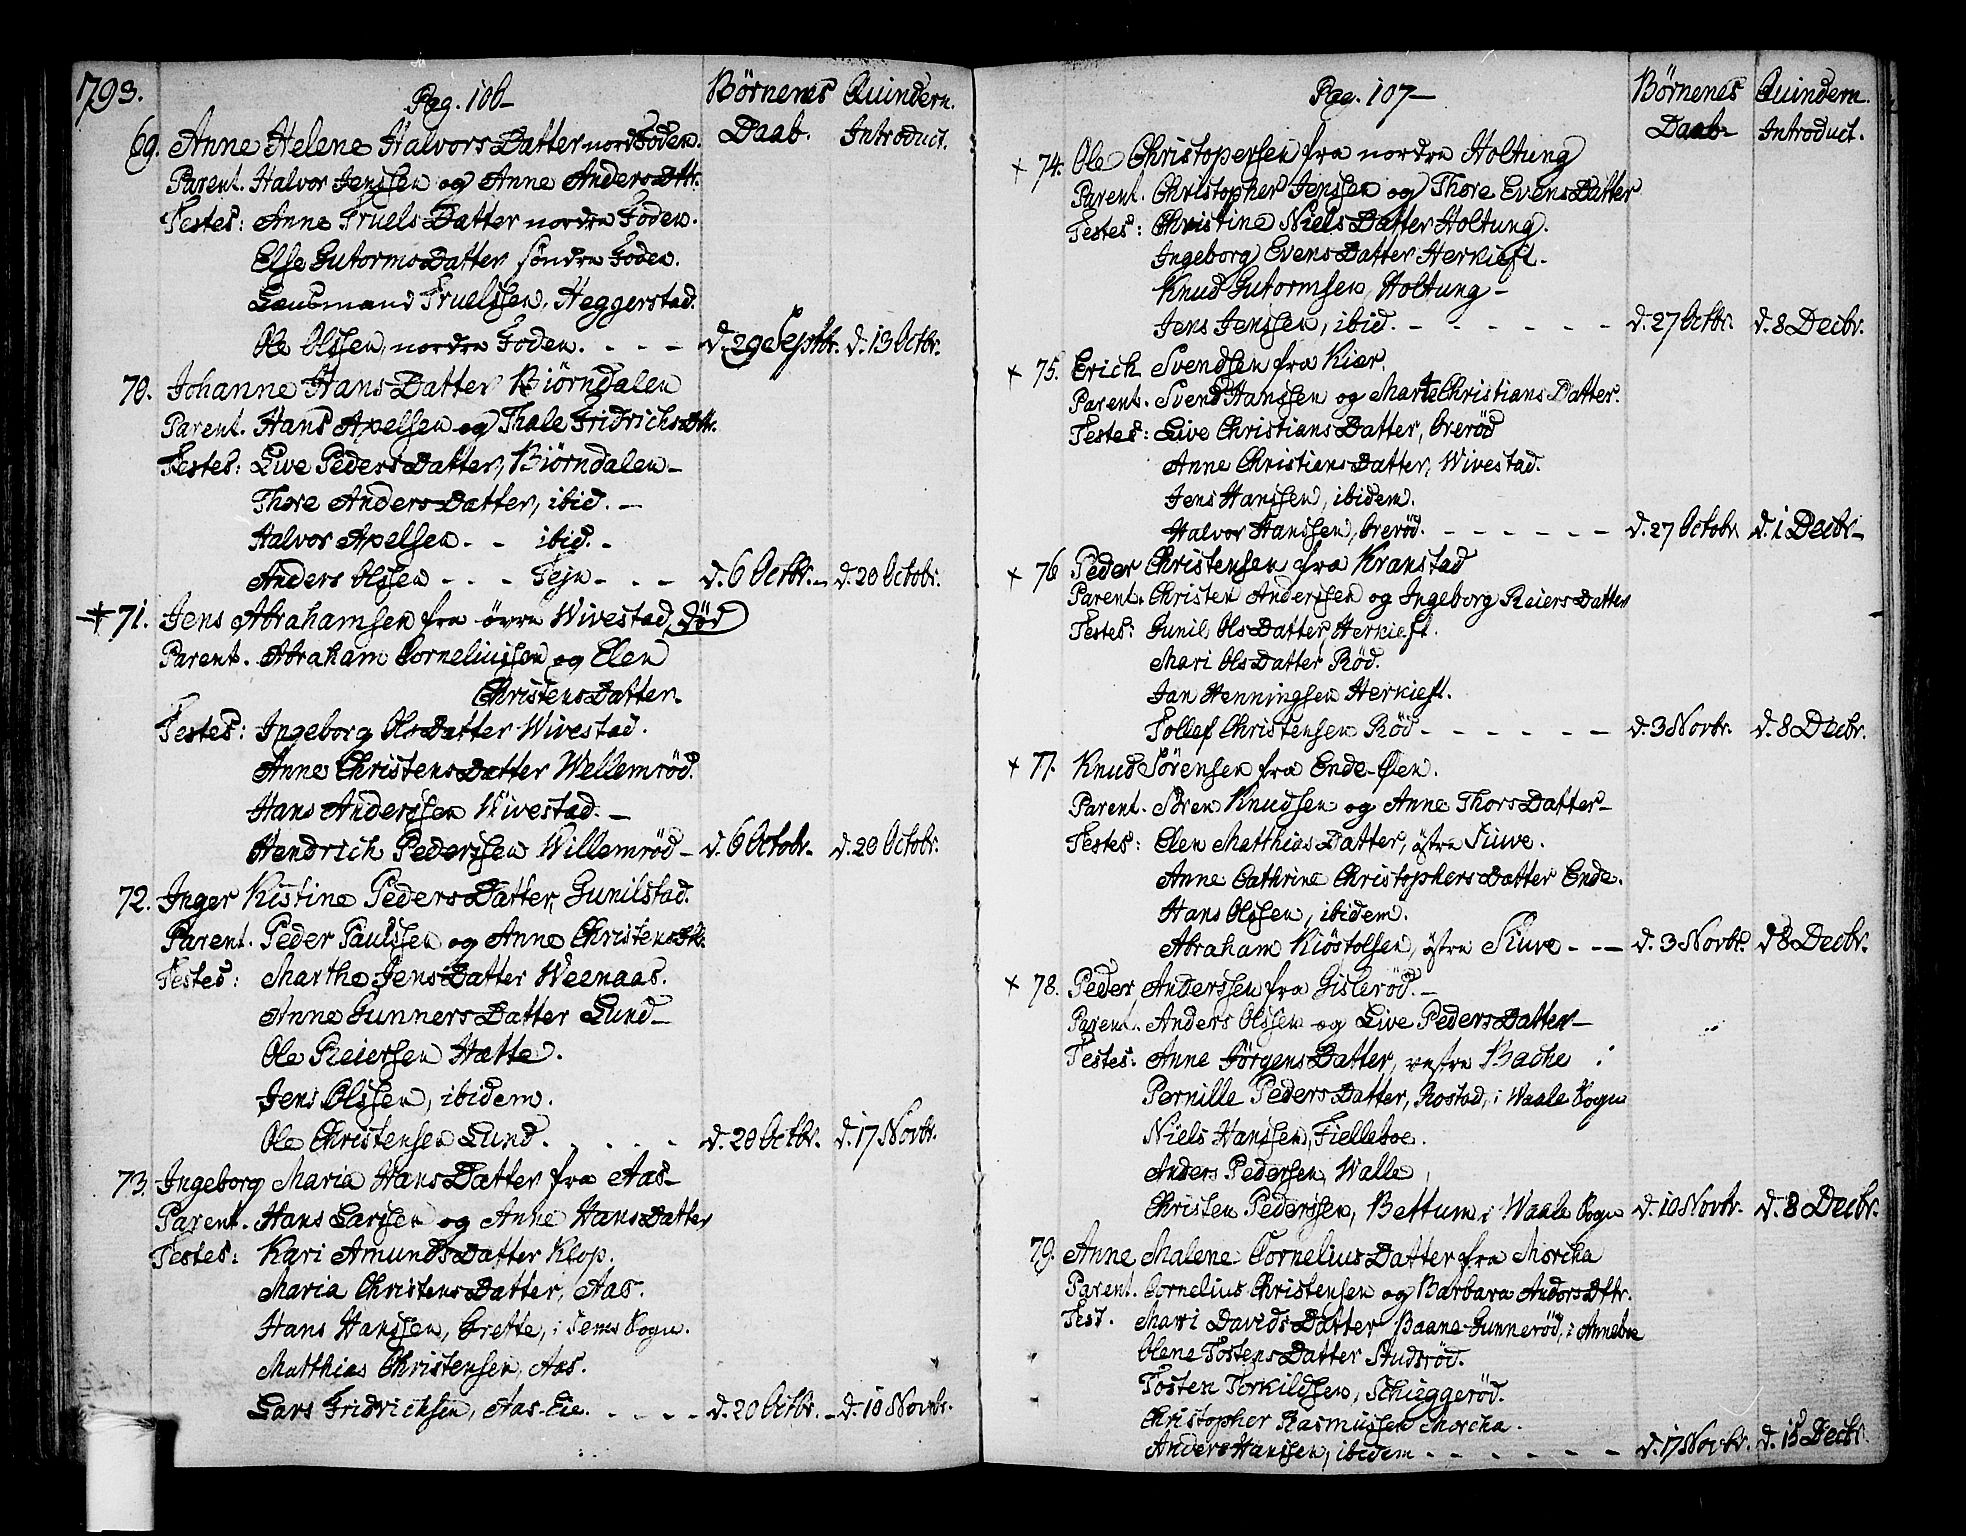 1793.
Pag. 106-
Börnenes Daab.
Quindern. Introduct.
69. Anne Helene Halvors Datter nordFoden.
Parent. Halvor Jenssen og Anne Anders Dttr.
Testes: Anne Truels Datter nordre Foden.
Else Gutorms Datter söndre Foden.
Lensmand Truelssen, Heggerstad.
Ole Olssen, nordre Foden. - - - d. 29 Septbr. d. 13 Octbr.
70. Johanne Hans Datter Biörndalen
Parent. Hans Apelsen og Thale Fridrichs Dttr.
Testes: Live Peders Datter, Biörndalen-
Thore Anders Datter, ibid. -
Halvor Apelsen - - ibid. -
Anders Olssen - - - Tejn - - - d. 6 Octbr. - d. 20 Octobr.
+ 71. Jens Abrahamsen fra övre Wivestad, död
Parent. Abraham Corneliussen og Elen
Christens Datter.
Testes: Ingeborg Ols Datter Wivestad.
Anne Christens Datter Wellemröd.
Hans Anderssen Wivestad. -
Hendrich Pederssen Willemröd - d. 6 Octobr. d. 20 Octobr.
72. Inger Kistine Peders Datter, Gunilstad.
Parent. Peder Paulssen og Anne Christens Dtr.
Testes: Marthe Jens Datter Weenaas.
Anne Gunners Datter Lund-
Ole Reiersen Hætte.
Jens Olssen, ibidem.
Ole Christensen Lund. - - - d. 20 Octbr. d. 17 Novbr.
73. Ingeborg Maria Hans Datter fra Aas-
Parent. Hans Larssen og Anne Hans Datter
Testes: Kari Amunds Datter Klop.
Maria Christens Datter, Aas.
Hans Hanssen, Grette, i Sems Sogn.
Matthias Christensen, Aas.
Lars Fridrichsen, Aas-Eie. - - - d. 20 Octbr. - d. 10 Novbr.
Pag. 107-
Börnenes Daab-
Quindern. Introduct.
+ 74. Ole Christopersen fra nordre Holtung
Parent. Christopher Jenssen og Thore Evens Datter
Testes: Christine Niels Datter Holtung.
Ingeborg Evens Datter Herkieft.
Knud Gutormsen, Holtung-
Jens Jenssen, ibid. - - - - - d. 27 Octbr. d. 8 Decbr.
+ 75. Erich Svendsen fra Kiær.
Parent. Svend Hanssen og Marte Christians Datter.
Testes: Live Christians Datter, Oreröd
Anne Christians Datter, Wivestad.
Jens Hanssen, ibidem.
Halvor Hanssen, Oreröd. - - - - - d. 27 Octobr d. 1 Decbr-
+ 76 Peder Christensen fra Kranstad
Parent. Christen Anderssen og Ingeborg Reiers Datter
Testes: Gunil Ols Datter Herkieft.
Mari Ols Datter Röd.
Jan Henningsen Herkieft.
Tollef Christensen Röd - - - - - d. 3 Novbr. d. 8 Decbr.
+ 77. Knud Sörensen fra Ende-Øen.
Parent. Sören Knudsen og Anne Thors Datter-
Testes: Elen Matthias Datter, östre Siuve.
Anne Cathrine Christophers Datter Ende.
Hans Olssen, ibidem.
Abraham Kiöstolsen, östre Siuve - - - d. 3 Novbr. d 8 Decbr.
+ 78. Peder Anderssen fra Gisleröd.-
Parent. Anders Olssen og Live Peders Datter-
Testes: Anne Jörgens Datter, vestre Bache
Pernille Peders Datter, Rostad, i Waale Sogn
Niels Hanssen, Fielleboe.
Anders Pedersen, Walle,
Christen Pederssen, Bettum i Waale Sogn d. 10 Novbr. d. 8 Decbr.
79. Anne Malene Cornelius Datter fra Morcha
Parent. Cornelius Christensen og Barbara Anders Dttr.
Test. Mari Davids Datter Baane-Gunneröd, i Anneboe
Olene Tostens Datter Studsröd.
Tosten Torkildsen, Schieggeröd.
Christopher Rasmussen Morcha.
Anders Hanssen, ibidem - - - - - d. 17 Novbr. d. 15 Decbr.